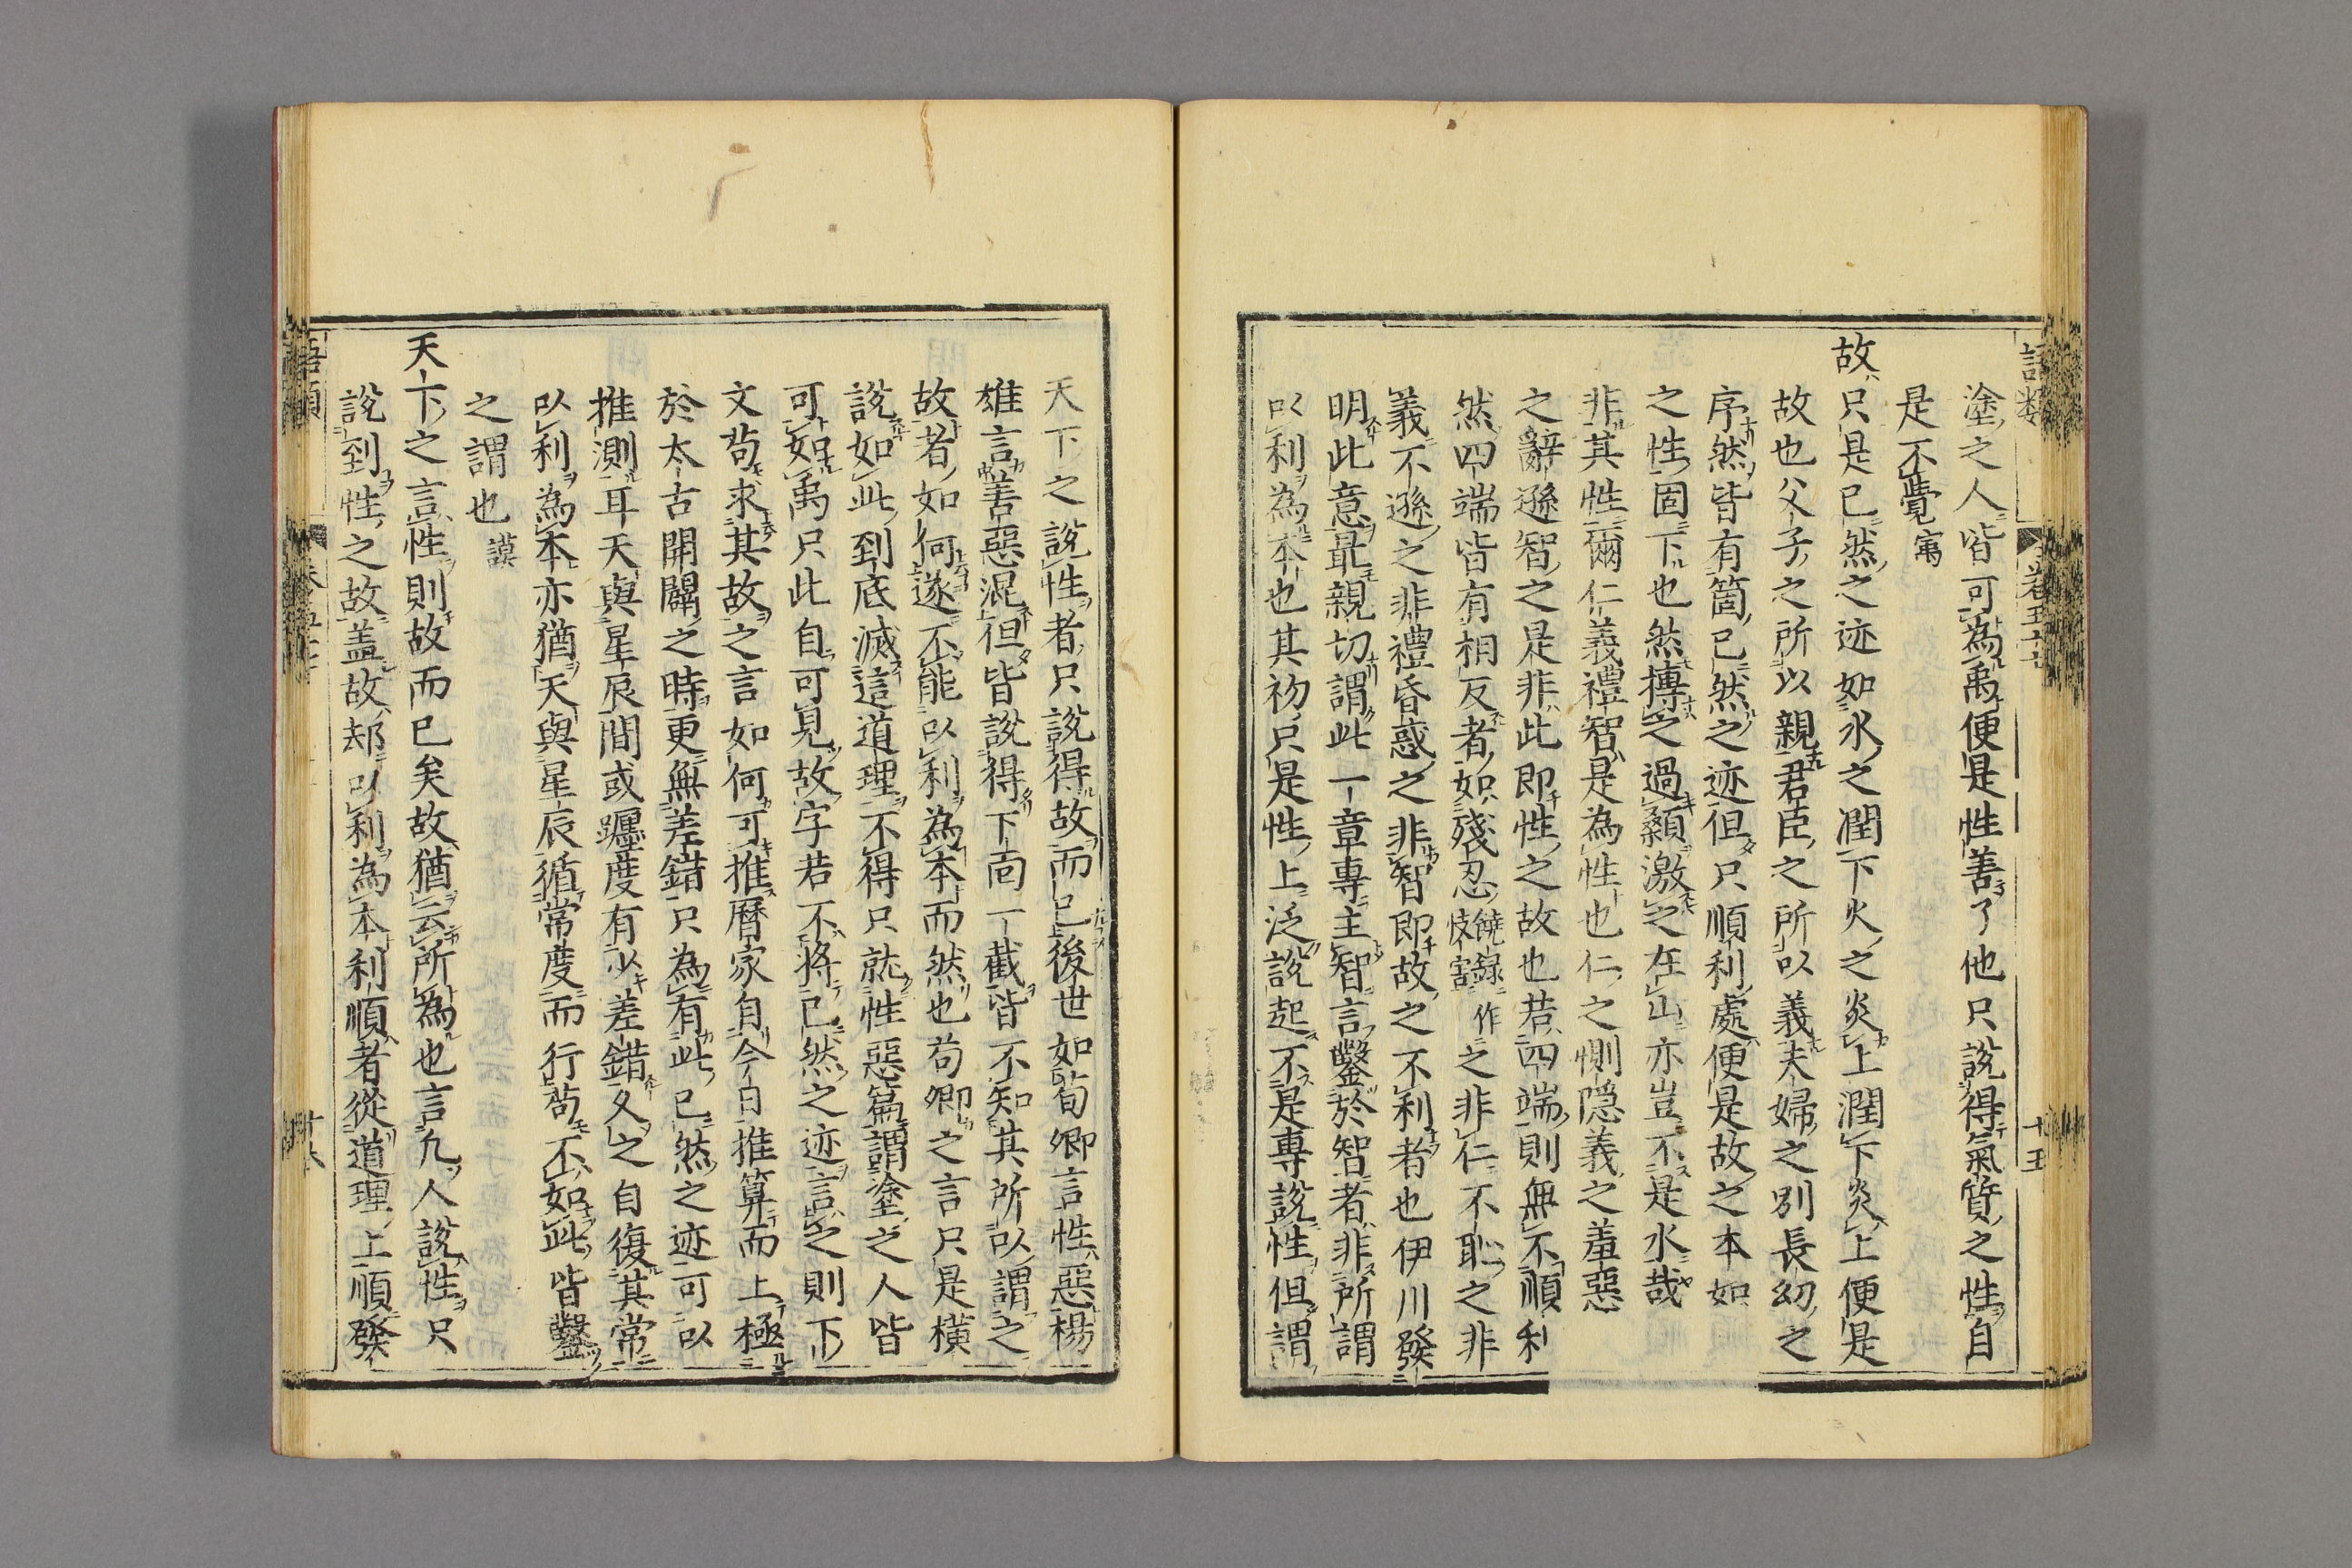 塗之人皆可為禹便是性善了他只說得氣質之性自
是不覺㝢
故只是已然之迹如水之潤下火之炎上潤下炎上便是
故也父子之所以親君臣之所以義夫婦之別長幼之
序然皆有箇已然之迹但只順利處便是故之本如
之性固下也然摶之過顙激之在山亦豈不是水哉
非其性爾仁義禮智是為性也仁之惻隠義之羞惡
之辭遜智之是非此即性之故也若四端則無不順利
然四端皆有相反者如殘忍饒錄作忮害之非仁不恥之非
義不遜之非禮昏惑之非智即故之不利者也伊川發
明此意最親切謂此一章專主智言鑿於智者非所謂
以利為本也其初只是性上泛說起不是專說性但謂
天下之說性者只說得故而已後世如荀卿言性惡楊
雄言善惡混但皆說得下面一截皆不知其所以謂之
故者如何遂不能以利為本而然也荀卿之言只是橫
說如此到底滅這道理不得只就性惡篇謂塗之人皆
可如禹只此自可見故字若不將已然之迹言之則下
文苟求其故之言如何可推曆家自今日推算而上極
於太古開闢之時更無差錯只為有此已然之迹可以
推測耳天與星辰間或躔度有少差錯久之自復其常
以利為本亦猶天與星辰循常度而行苟不如此皆鑿
之謂也謨
天下之言性則故而已矣故猶云所為也言凡人說性只
說到性之故盖故却以利為本利順者從道理上順發
語類
卷五十七
十五